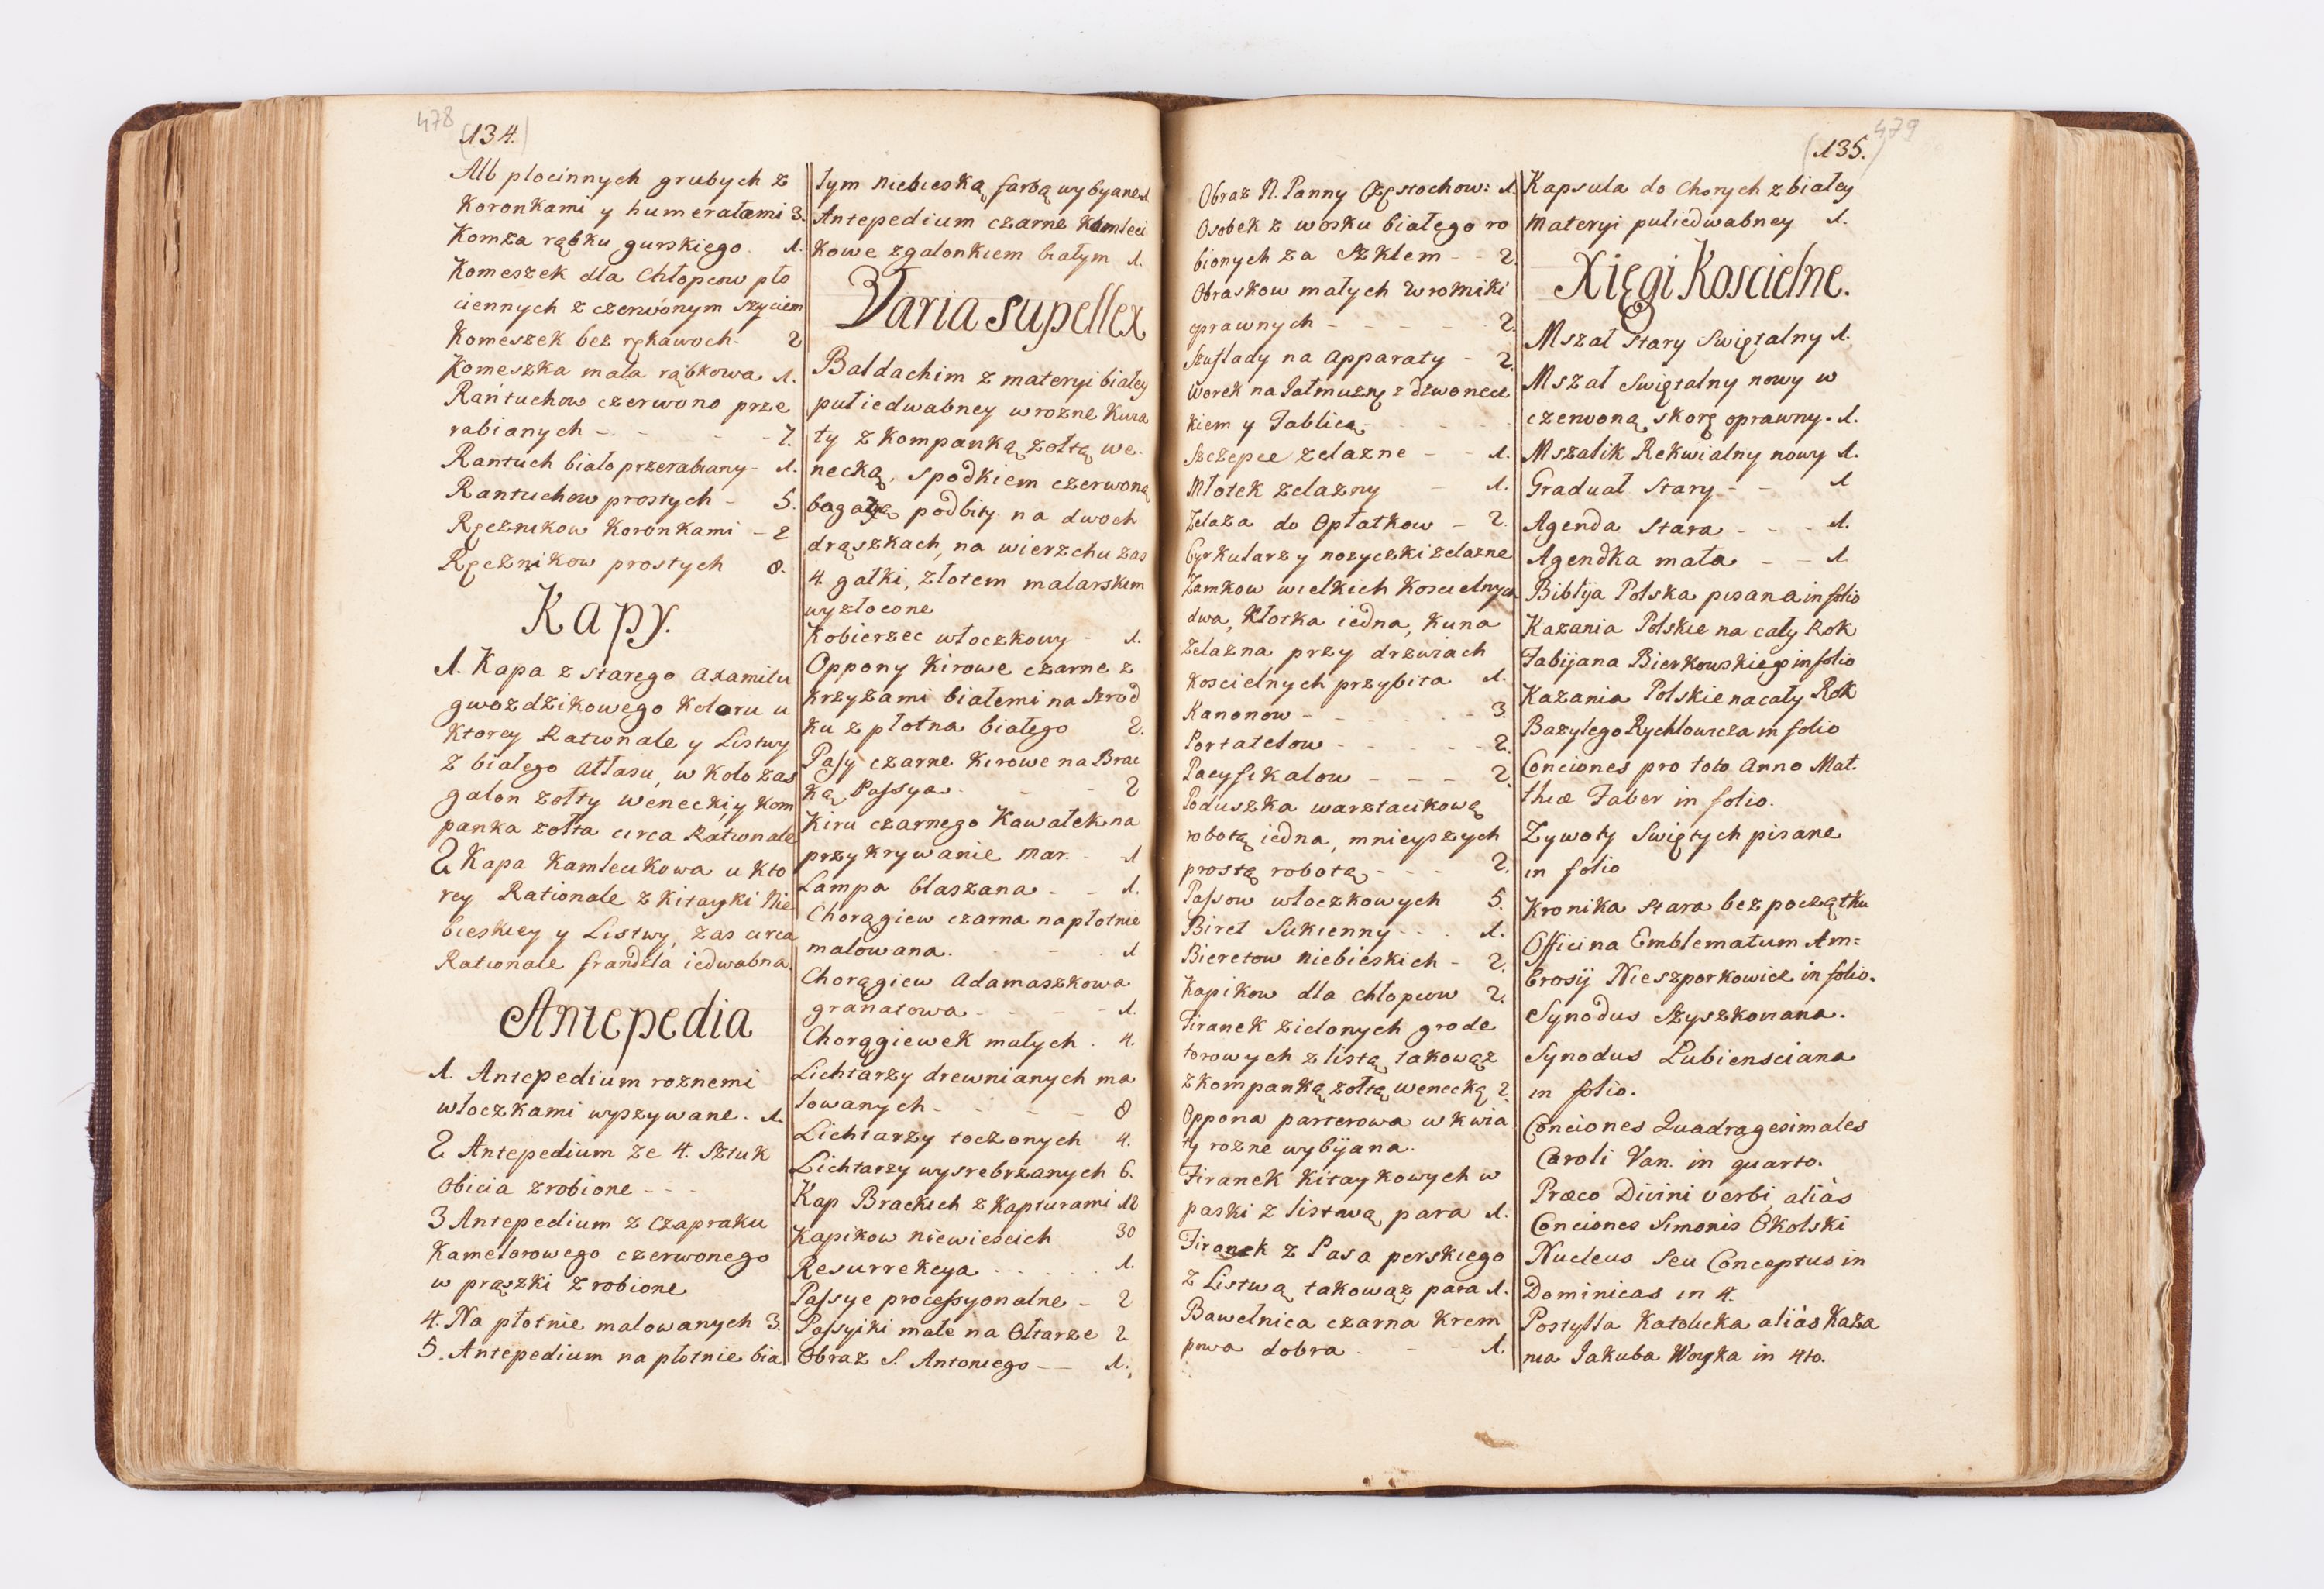 478
(134.)
Alb płocinnych grubych z
Koronkami y humerałami 3.
Komza rąbku gurskiego. 1.
Komeszek dla Chłopcow pło
ciennych z czerwonym szyciem
Komeszek bez rękawoch. 2
Komeszka mała rąbkowa 1.
Rańtuchow czerwono prze
rabianych - - - - 7.
Rantuch biało przerabiany - 1.
Rantuchow prostych - 5.
Ręcznikow koronkami - 2
Ręcznikow prostych 8.
Kapy.
1. Kapa z starego axamitu
gwozdzikowego koloru u
ktorey Rationale y Listwy
z białego atłasu, w koło zas
galon zołty wenecki, y kom
panka zołta circa Rationale
2 Kapa Kamleukowa u kto
rey Rationale z kitayki Nie
bieskiey y Listwy, zas circa
Rationale frandzla iedwabna.
Antepedia
1. Antepedium roznemi
włoczkami wyszywane. 1.
2 Antepedium ze 4. sztuk
obicia zrobione - - -
3 Antepedium z czapraku
Kamelorowego czerwonego
w prąszki zrobione
4. Na płotnie malowanych 3.
5. Antepedium na płotnie bia
łym niebieską farbą wybyane 1
Antepedium czarne Kamleci
kowe z galonkiem białym 1.
Varia supellex
Baldachim z materyi białey
pułiedwabney w rozne kwia
ty z kompanką zołtą we-
necką, spodkiem czerwoną
bagazyą podbity na dwoch
drąszkach, na wierzchu zas
4. gałki, złotem malarskim
wyzłocone
Kobierzec włoczkowy - 1.
Oppony kirowe czarne z
krzyzami białemi na srzod
ku z płotna białego 2.
Passy czarne kirowe na Brac
ką Passya - - - 2
Kiru czarnego Kawałek na
przykrywanie mar. - 1
Lampa blaszana - - 1.
Chorągiew czarna na płotnie
malowana. - - - 1
Chorągiew Adamaszkowa
granatowa - - - - 1.
Chorągiewek małych . 4.
Lichtarzy drewnianych ma
lowanych - - - - 8
Lichtarzy toczonych 4.
Lichtarzy wysrebrzanych 6.
Kap Brackich z kapturami 12
Kapikow niewiescich 30
Resurrekcya . . . . . 1.
Passye processyonalne - 2
Passyiki małe na Ołtarze 2
Obraz S. Antoniego - - 1.
479
(135.)
Obraz N. Panny Częstochow: 1.
Osobek z wosku białego ro
bionych za szkłem - - 2.
Obraskow małych w romiki
oprawnych - - - - - 2.
Szuflady na apparaty - 2.
Worek na Jałmuznę z dzwonecz
kiem y Tablicą - - - -
Szczepce zelazne - - 1.
Młotek zelazny - 1.
Zelaza do Opłatkow - 2.
Cyrkularz y nozyczki zelazne
Zamkow wielkich Koscielnych
dwa, kłotka iedna, kuna
Zelazna przy drzwiach
koscielnych przybita 1.
Kanonow - - - - - - 3.
Portatelow - - - - - - 2.
Pacyfikalow - - - - 2.
Poduszka warztacikową
robotą iedna, mnieyszych
prostą robotą - - - 2.
Passow włoczkowych 5.
Biret Sukienny - - . 1.
Bieretow niebieskich - 2.
Kapikow dla chłopcow 2.
Firanek zielonych grode
torowych z listą takowąz
z kompanką zołtą wenecką 2.
Oppona parterowa w kwia
ty rozne wybijana.
Firanek kitaykowych w
paski z listwą para 1.
Firanek z Pasa perskiego
z Listwą takowąz para 1.
Bawelnica czarna krem
powa dobra - - - 1.
Kapsula do chorych z białey
Materyi pułiedwabney 1.
Xięgi Koscielne.
Mszał stary swiętalny 1.
Mszał swiętalny nowy w
czerwoną skorę oprawny. 1.
Mszalik Rekwialny nowy 1.
Graduał stary - - 1
Agenda stara - - - 1.
Agendka mała - - 1.
Biblija Polska pisana in folio
Kazania Polskie na cały Rok
Fabijana Bierkowskiego in folio
Kazania Polskie na cały Rok
Bazylego Rychlowicza in folio
Conciones pro toto Anno Mat.
thiæ Faber in folio.
Zywoty Swiętych pisane
in folio
Kronika stara bez początku
Officina Emblematum Am=
brosij Nieszporkowicz in folio.
Synodus Szyszkoviana.
Synodus Lubiensciana
in folio.
Conciones Quadragesimales
Caroli Van. in quarto.
Præco Divini verbi, aliàs
Conciones Simonis Okolski
Nucleus seu Conceptus in
Dominicas in 4.
Postylla Katolicka aliàs Kaza
nia Jakuba Woyka in 4to.